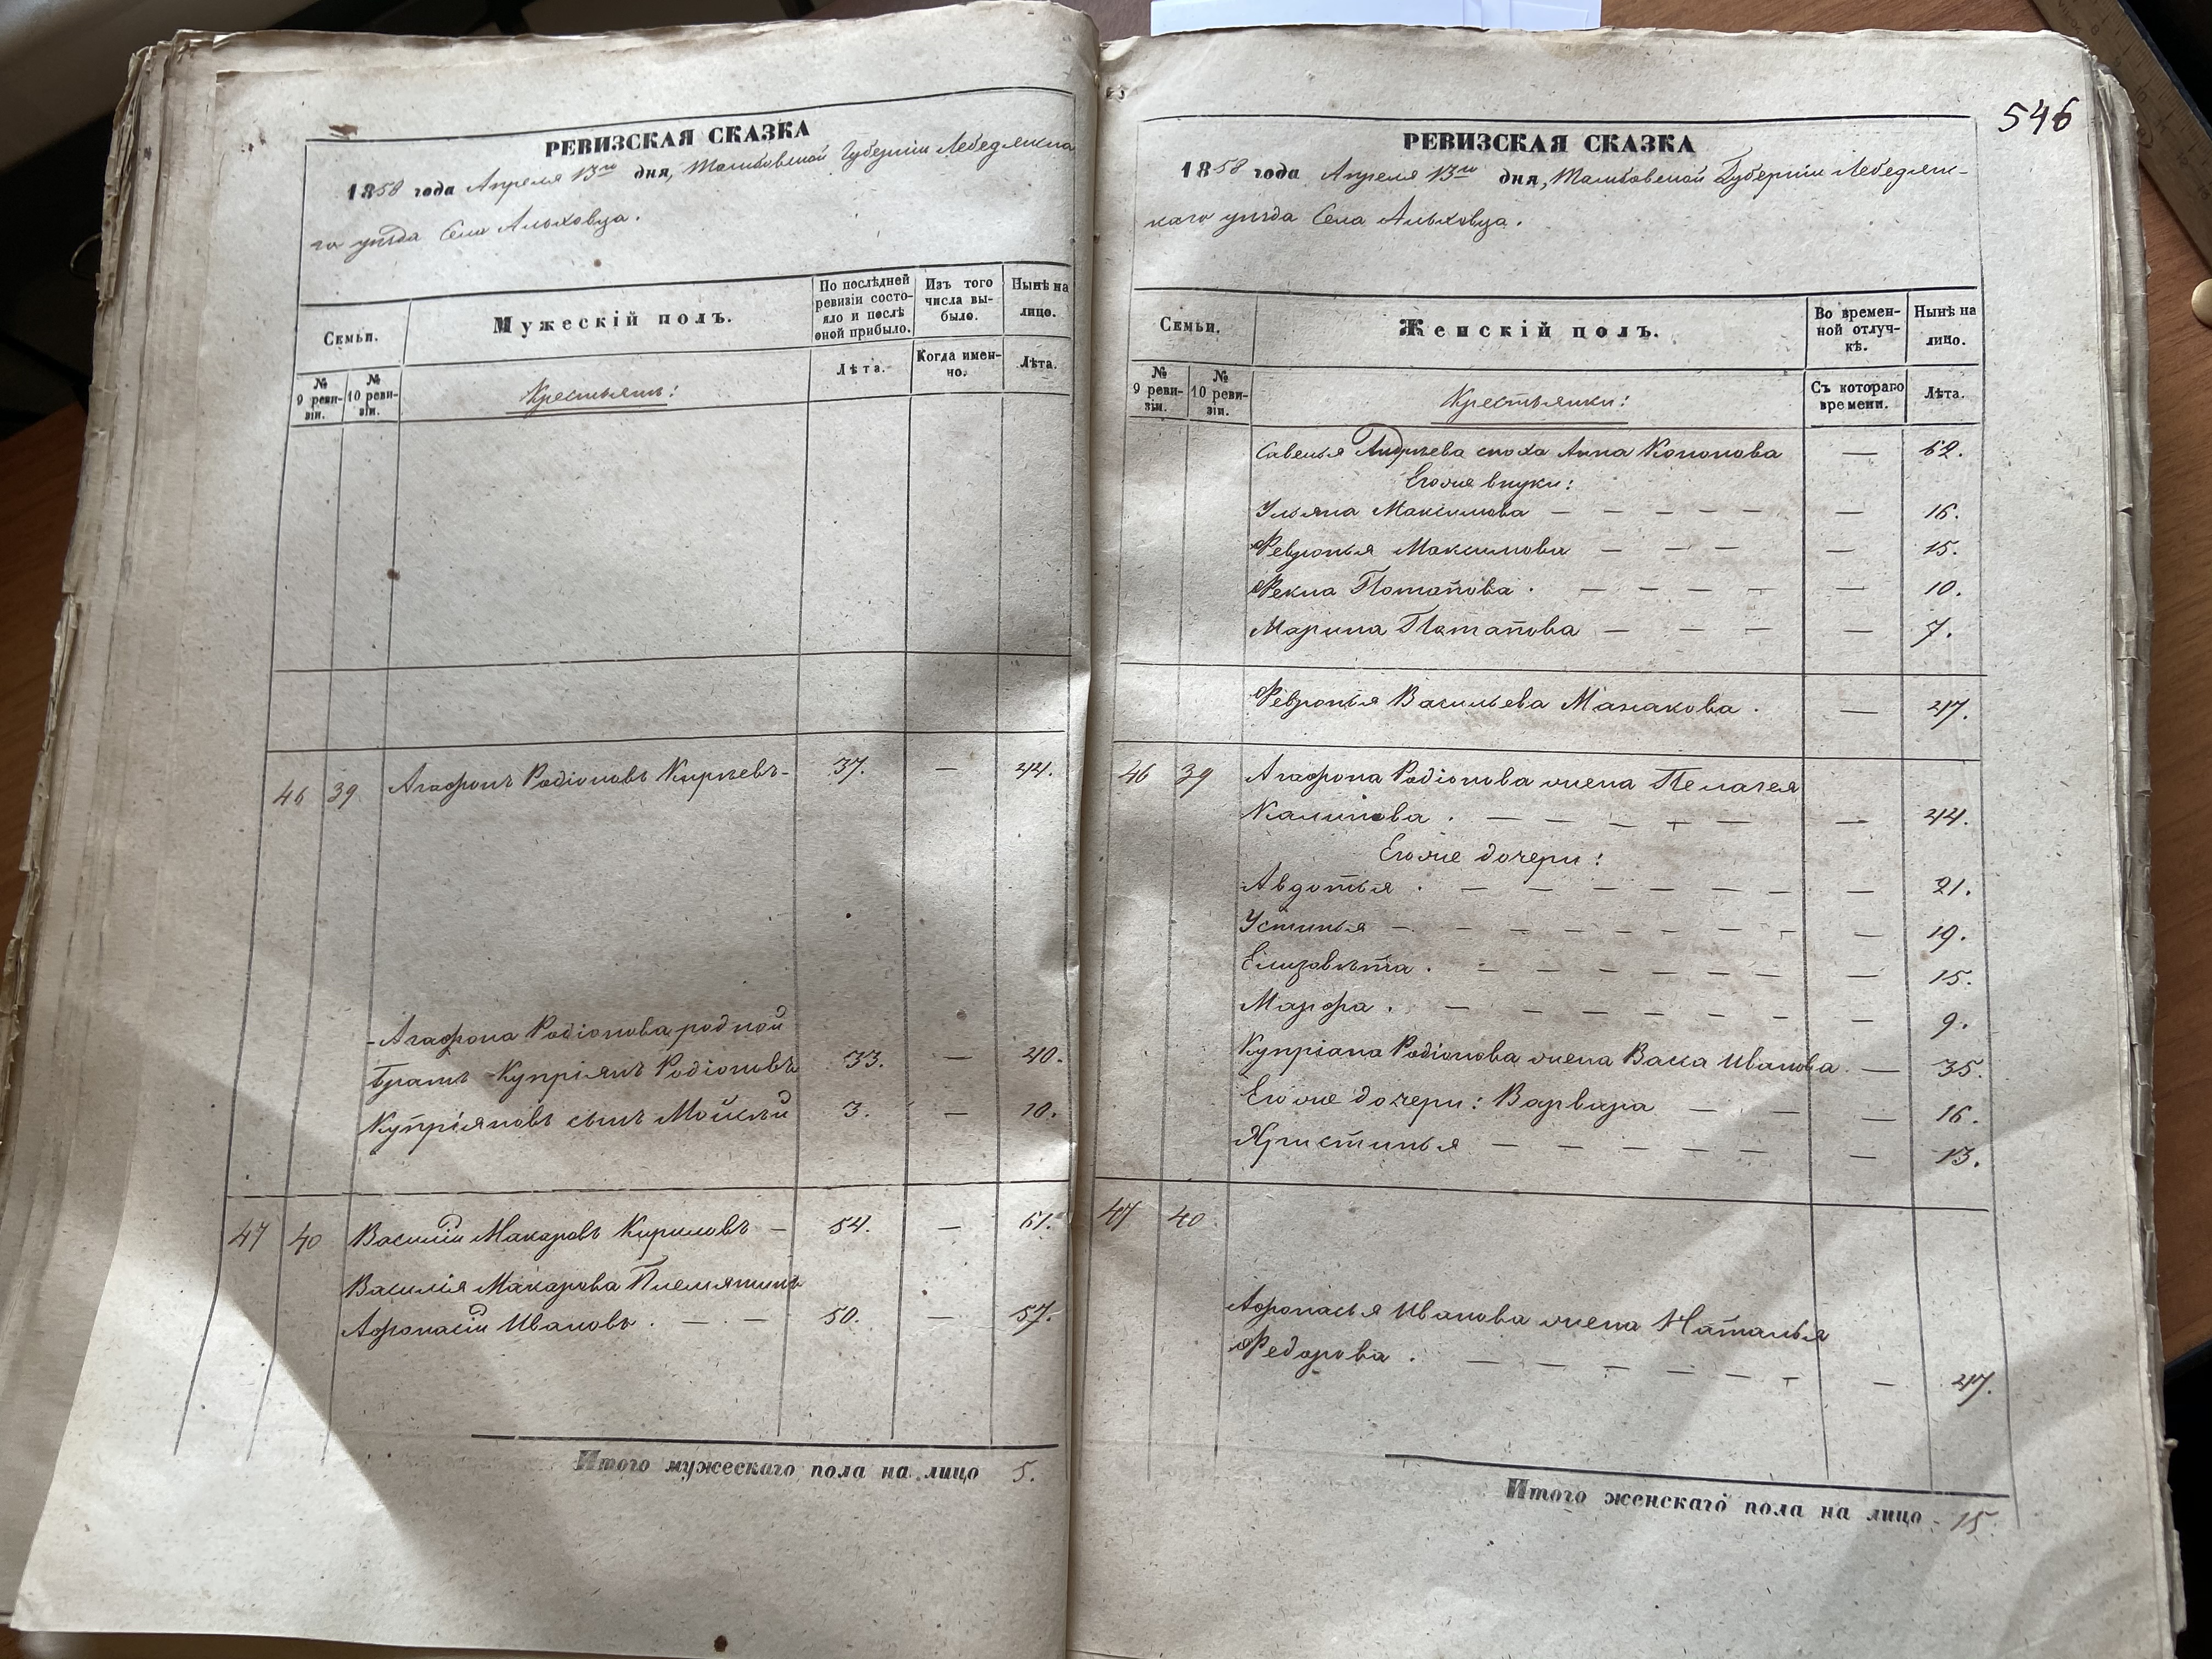 РЕВИЗСКАЯ СКАЗКА
1858 года Апреля 13го дня, Тамбовской Губернiи Лебедянска
го уѣзда Села Альховца.
Семьи.
Мужескiй полъ.
По послѣдней
ревизiи состо-
яло и послѣ
оной прибыло.
Изъ того
числа вы-
было.
Нынѣ на
лицо.
№
9 реви-
зiи.
№
10 реви-
зiи.
Крестьянъ:
Лѣта.
Когда имен-
но.
Лѣта.
46 39 Агафонъ Родiоновъ Кирѣевъ - 37. — 44.
- Агафона Родiонова родной
братъ Купрiянъ Родiоновъ 33. — 40.
Купрiяновъ сынъ Мойсѣй 3. — 10.
47 40 Василiй Макаровъ Кириловъ — 54. — 61.
Василiя Макарова Племянникъ
Афонасiй Ивановъ . — — 50. — 57.
Итого мужескаго пола на лицо 5.
546
РЕВИЗСКАЯ СКАЗКА
1858 года Апреля 13го дня, Тамбовской Губернiи Лебедян-
скаго уѣзда Села Альховца.
Семьи.
Женскiй полъ.
Во времен-
ной отлуч-
кѣ.
Нынѣ на
лицо.
№
9 реви-
зiи.
№
10 реви-
зiи.
Крестьянки:
Съ котораго
времени.
Лѣта.
Савелья Андрѣева сноха Анна Кононова — 62.
Егоже внуки:
Ульяна Максимова — — — — — — 16.
Февронья Максимова — — — — 15.
Фекла Потапова . — — — — — 10.
Марина Потапова — — — — 7.
Февронья Васильева Манакова . — 47.
46 39 Агафона Родiонова жена Пелагея
Калинова . — — — — — — 44.
Егоже дочери:
Авдотья . — — — — — — — 21.
Устинья — — — — — — — — 19.
Елизавѣта . — — — — — — — 15.
Марфа . — — — — — — — 9.
Купрiана Родiонова жена Васа Иванова . — 35.
Егоже дочери: Варвара — — — — 16.
Христинья — — — — — — 13.
47 40
Афонасья Иванова жена Наталья
Федорова . — — — — — — — 47.
Итого женскаго пола на лицо - 15.